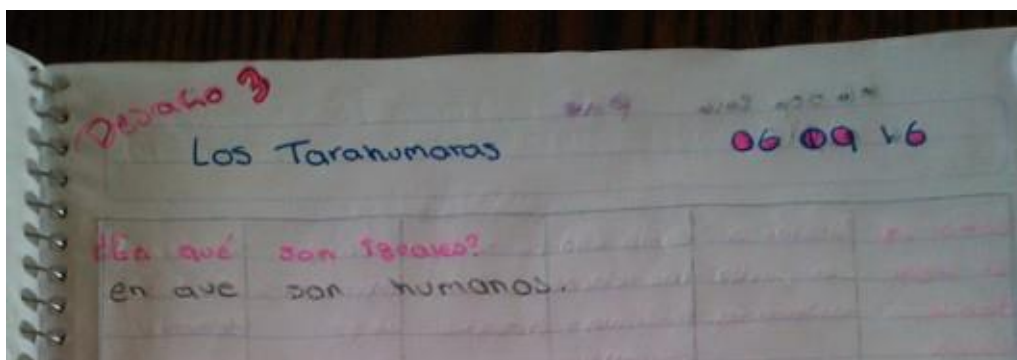 Desafio 3
Los Tarahumaras 06 09 16
¿En qué son Iguales?
en que son humanos.